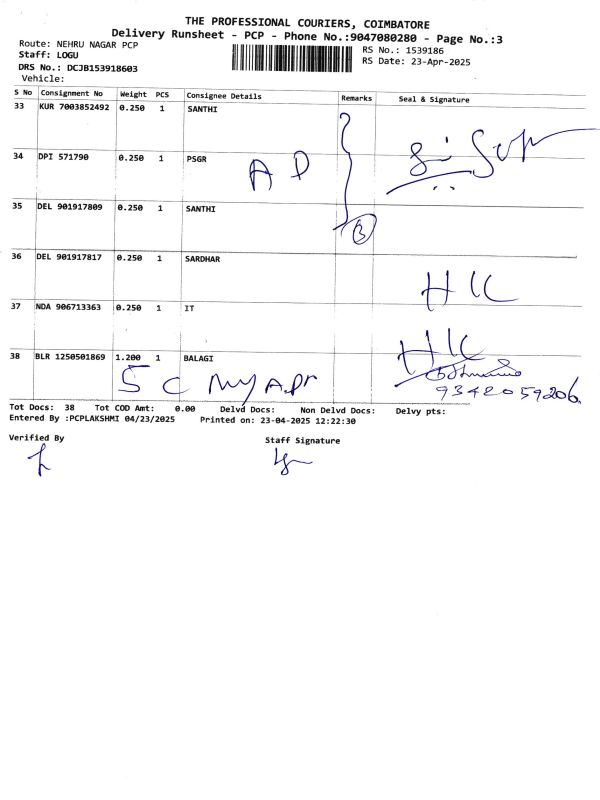 THE PROFESSIONAL COURIERS, COIMBATORE
Delivery Runsheet - PCP - Phone No.:9047080280 - Page No.:3
Route: NEHRU NAGAR PCP
RS No.: 1539186
Staff: LOGU
RS Date: 23-Apr-2025
DRS No.: DCJB153918603
Vehicle:
S No Consignment No Weight PCS Consignee Details Remarks Seal & Signature
33 KUR 7003852492 0.250 1 SANTHI
34 DPI 571790 0.250 1 PSGR
A D
35 DEL 901917809 0.250 1 SANTHI
3
36 DEL 901917817 0.250 1 SARDHAR
HK
37 NDA 906713363 0.250 1 IT
HK
38 BLR 1250501869 1.200 1 BALAGI
5 C
9342059206
Tot Docs: 38 Tot COD Amt: 0.00 Delvd Docs: Non Delvd Docs: Delvy pts:
Entered By :PCPLAKSHMI 04/23/2025 Printed on: 23-04-2025 12:22:30
Verified By Staff Signature